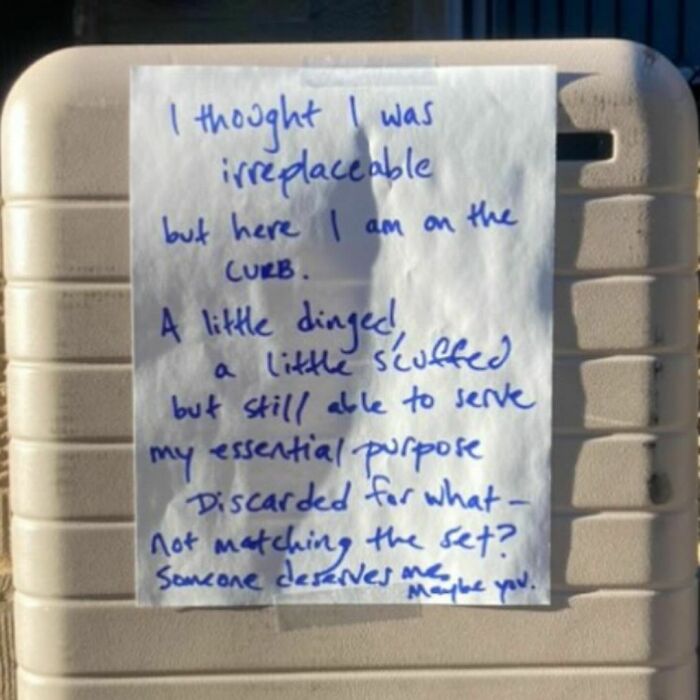 I thought I was
irreplaceable
but here I am on the
CURB.
A little dinged,
a little scuffed
but still able to serve
my essential purpose
Discarded for what –
not matching the set?
Someone deserves me.
Maybe you.